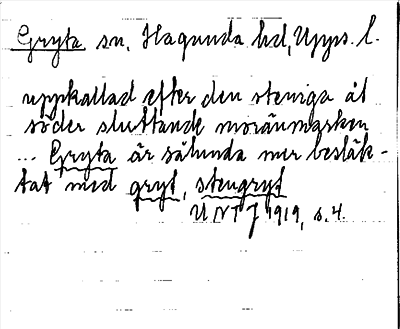 Gryta sn, Hagunda hd, Upps. l.
uppkallad efter den steniga åt
söder sluttande moränmarken
... Gryta är sålunda mer besläk-
tat med gryt, stengryt
UNTJ 1919, s. 4.